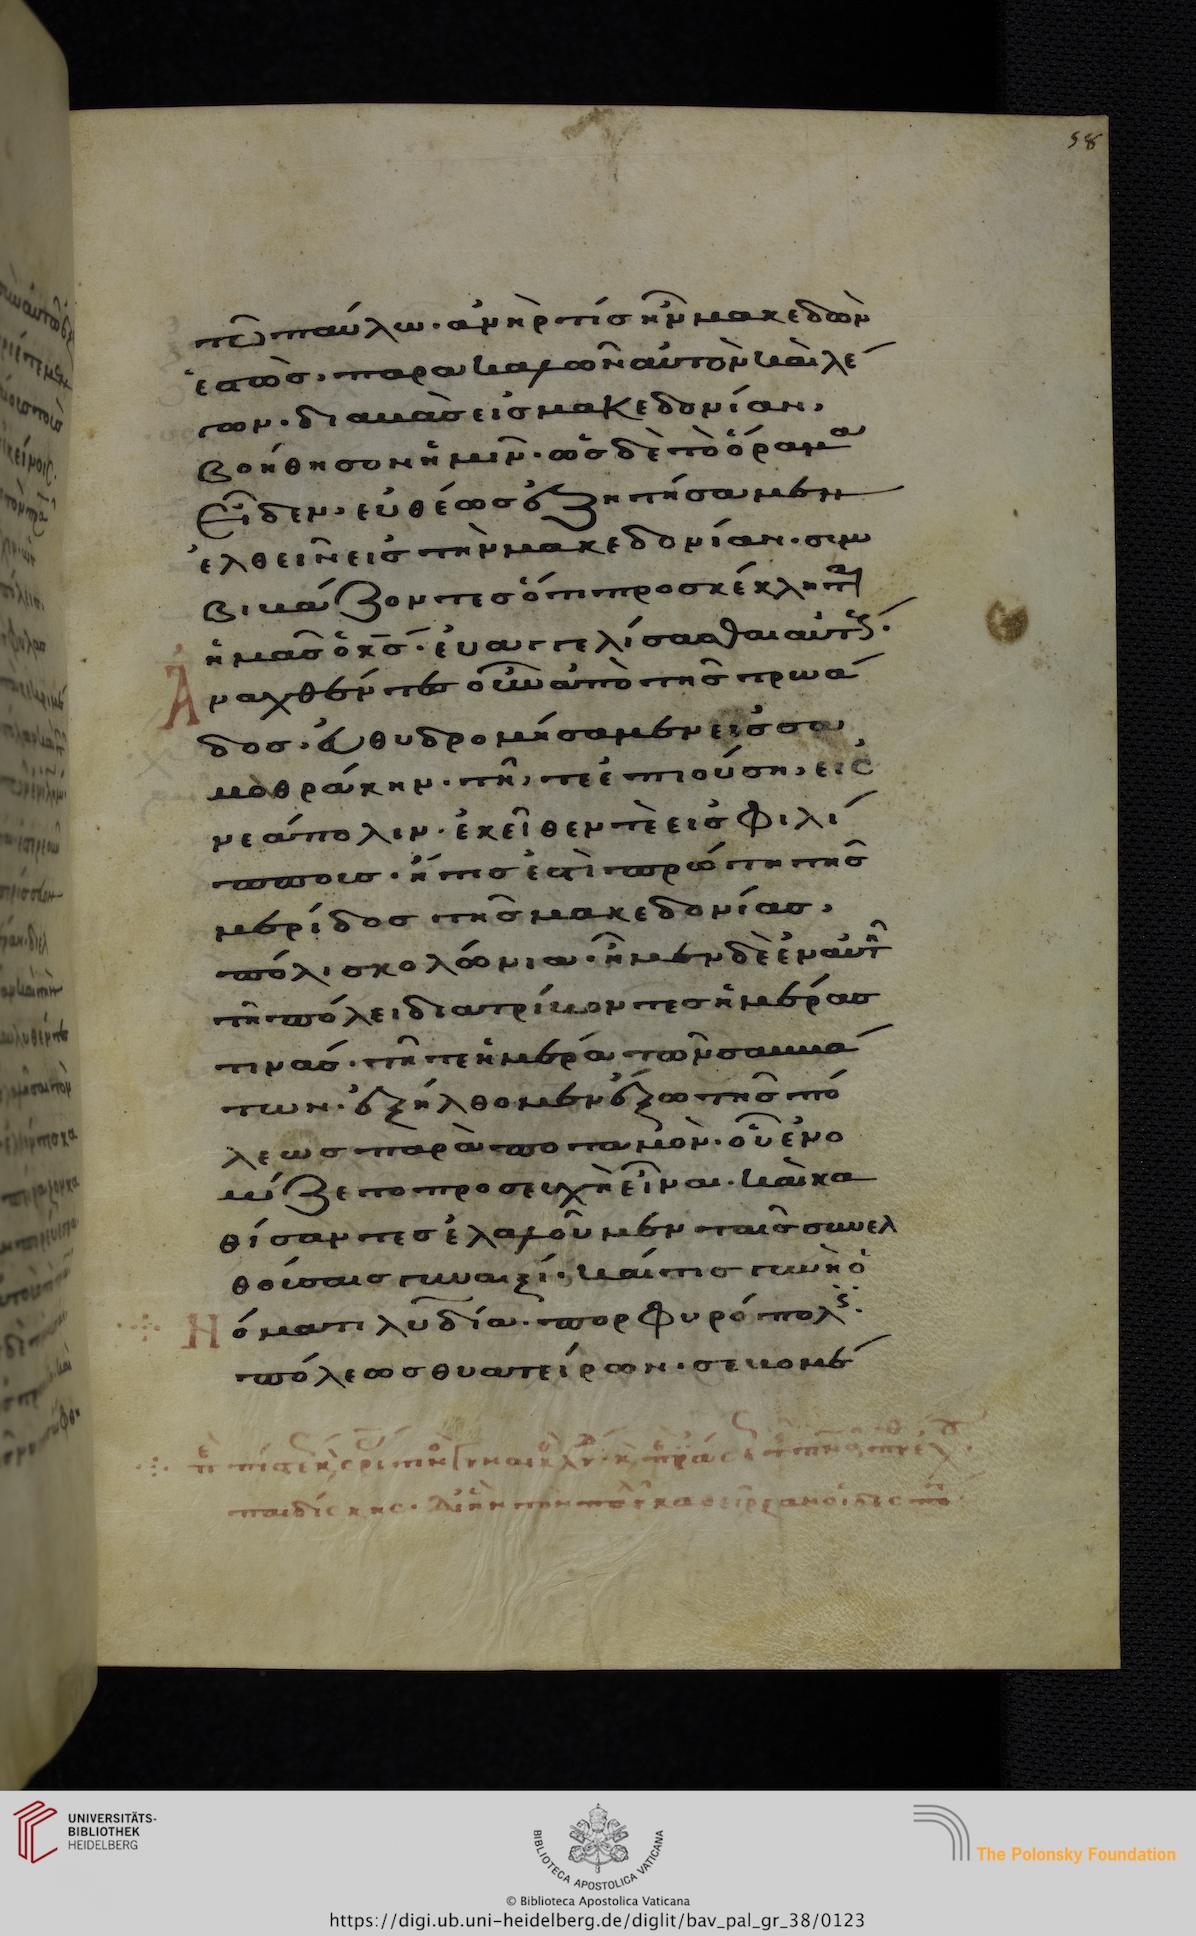 58
τῶ παύλω· ἀνὴρ τίς ἦν μακεδὼν
ἑστὼς, παρακαλῶν αὐτὸν καὶ λέ
γων· διαβὰς εἰς μακεδονίαν,
βοήθησον ἡμῖν· ὡς δὲ τὸ ὅραμα
εἶδεν, εὐθέως ἐζητήσαμεν
ἐλθεῖν εἰς τὴν μακεδονίαν· συμ
βιβάζοντες ὅτι προσκέκληται
ἡμᾶς ὁ κ̅ς̅ εὐαγγελίσασθαι αὐτούς·
Ἀναχθέντες οὖν ἀπὸ τῆς τρωά
δος· εὐθυδρομήσαμεν εἰς σα
μοθράκην· τῆ, τε ἐπιούση, εἰς
νεάπολιν· ἐκεῖθεν τὲ εἰς φιλί
ππους· ἥτις ἐστὶ πρώτη τῆς
μερίδος τῆς μακεδονίας,
πόλις κολώνια· ἦμεν δὲ ἐν αὐτῆ
τῆ πόλει διατρίβοντες ἡμέρας
τινάς· τῆ τε ἡμέρα τῶν σαββά
των· ἐξήλθομεν ἔξω τῆς πό
λεως παρὰ ποταμὸν· οὗ ἐνο
μίζετο προσευχὴ εἶναι· καὶ κα
θίσαντες ἐλαλοῦμεν ταῖς συνελ
θούσαις γυναιξί· καί τις γυνὴ ὀ
Νόματι λυδία· πορφυρόπολις·
πόλεως θυατείρων· σεβομέ
παιδίσκης·
UNIVERSITÄTS-
BIBLIOTHEK
HEIDELBERG
BIBLIOTECA APOSTOLICA VATICANA
The Polonsky Foundation
© Biblioteca Apostolica Vaticana
https://digi.ub.uni-heidelberg.de/diglit/bav_pal_gr_38/0123